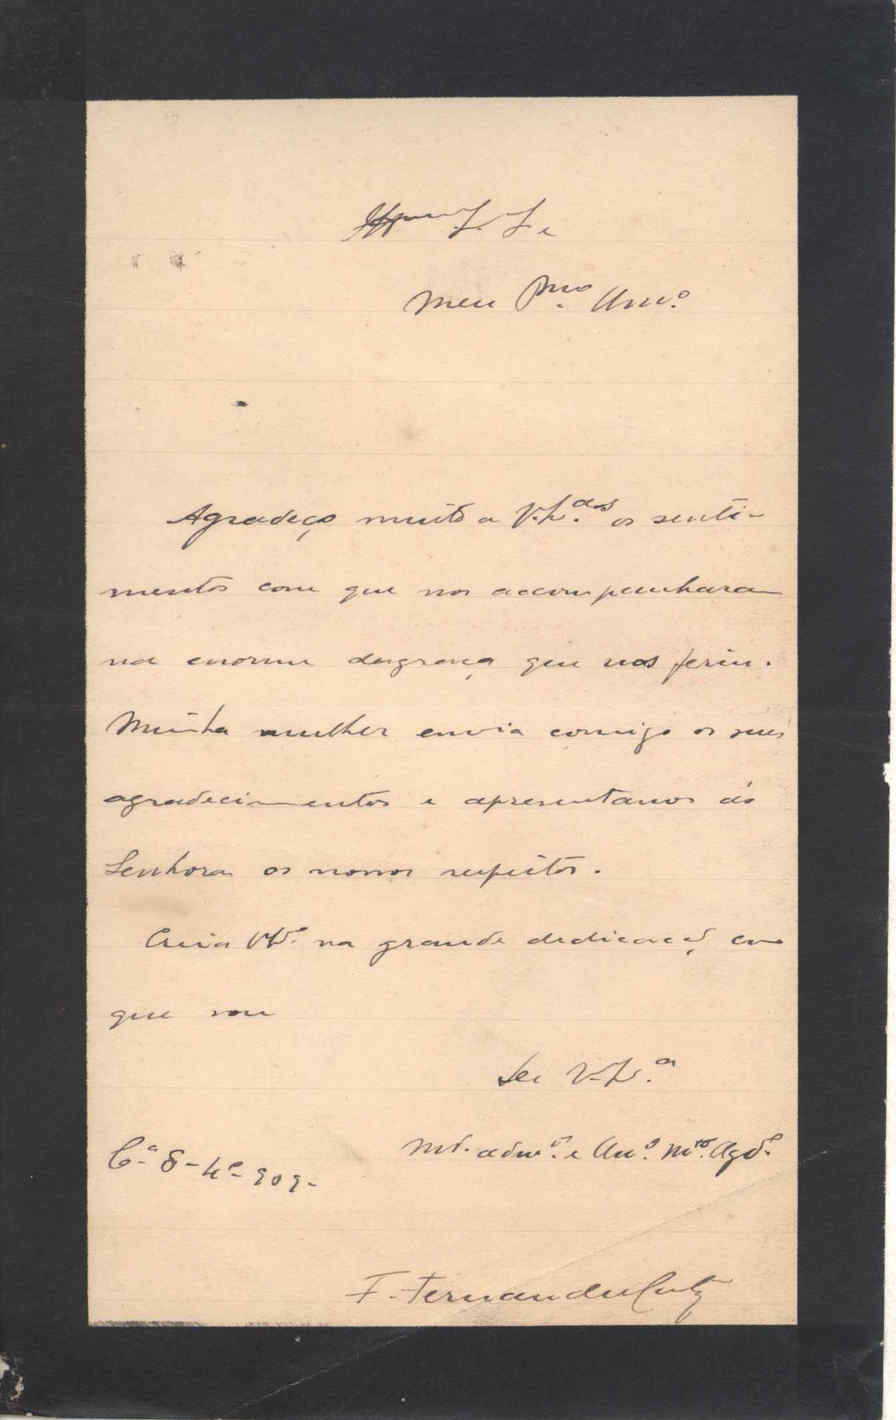 Meu Pmo. Amº.
Agradeço muito a V. Ex.as os senti-
mentos com que nos accompanharam
na enorme desgraça que nos feriu.
Minha mulher envia comigo os seus
agradecimentos e apresentamos ás
Senhoras os nossos respeitos.
Creia V. na grande dedicação com
que sou
De V. Ex.ª
mt. admor. e Amº. mto. Agdº.
C.ª 8-4º-909-
F. Fernandes Costa